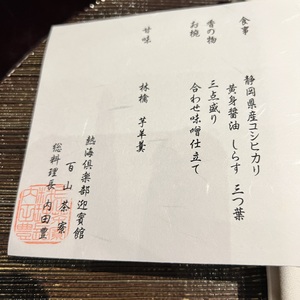 食事
静岡県産コシヒカリ
黄身醤油 しらす 三つ葉
香の物
三点盛り
お椀
合わせ味噌仕立て
甘味
林檎 芋羊羹
熱海倶楽部迎賓館
百山茶寮
総料理長 内田豊